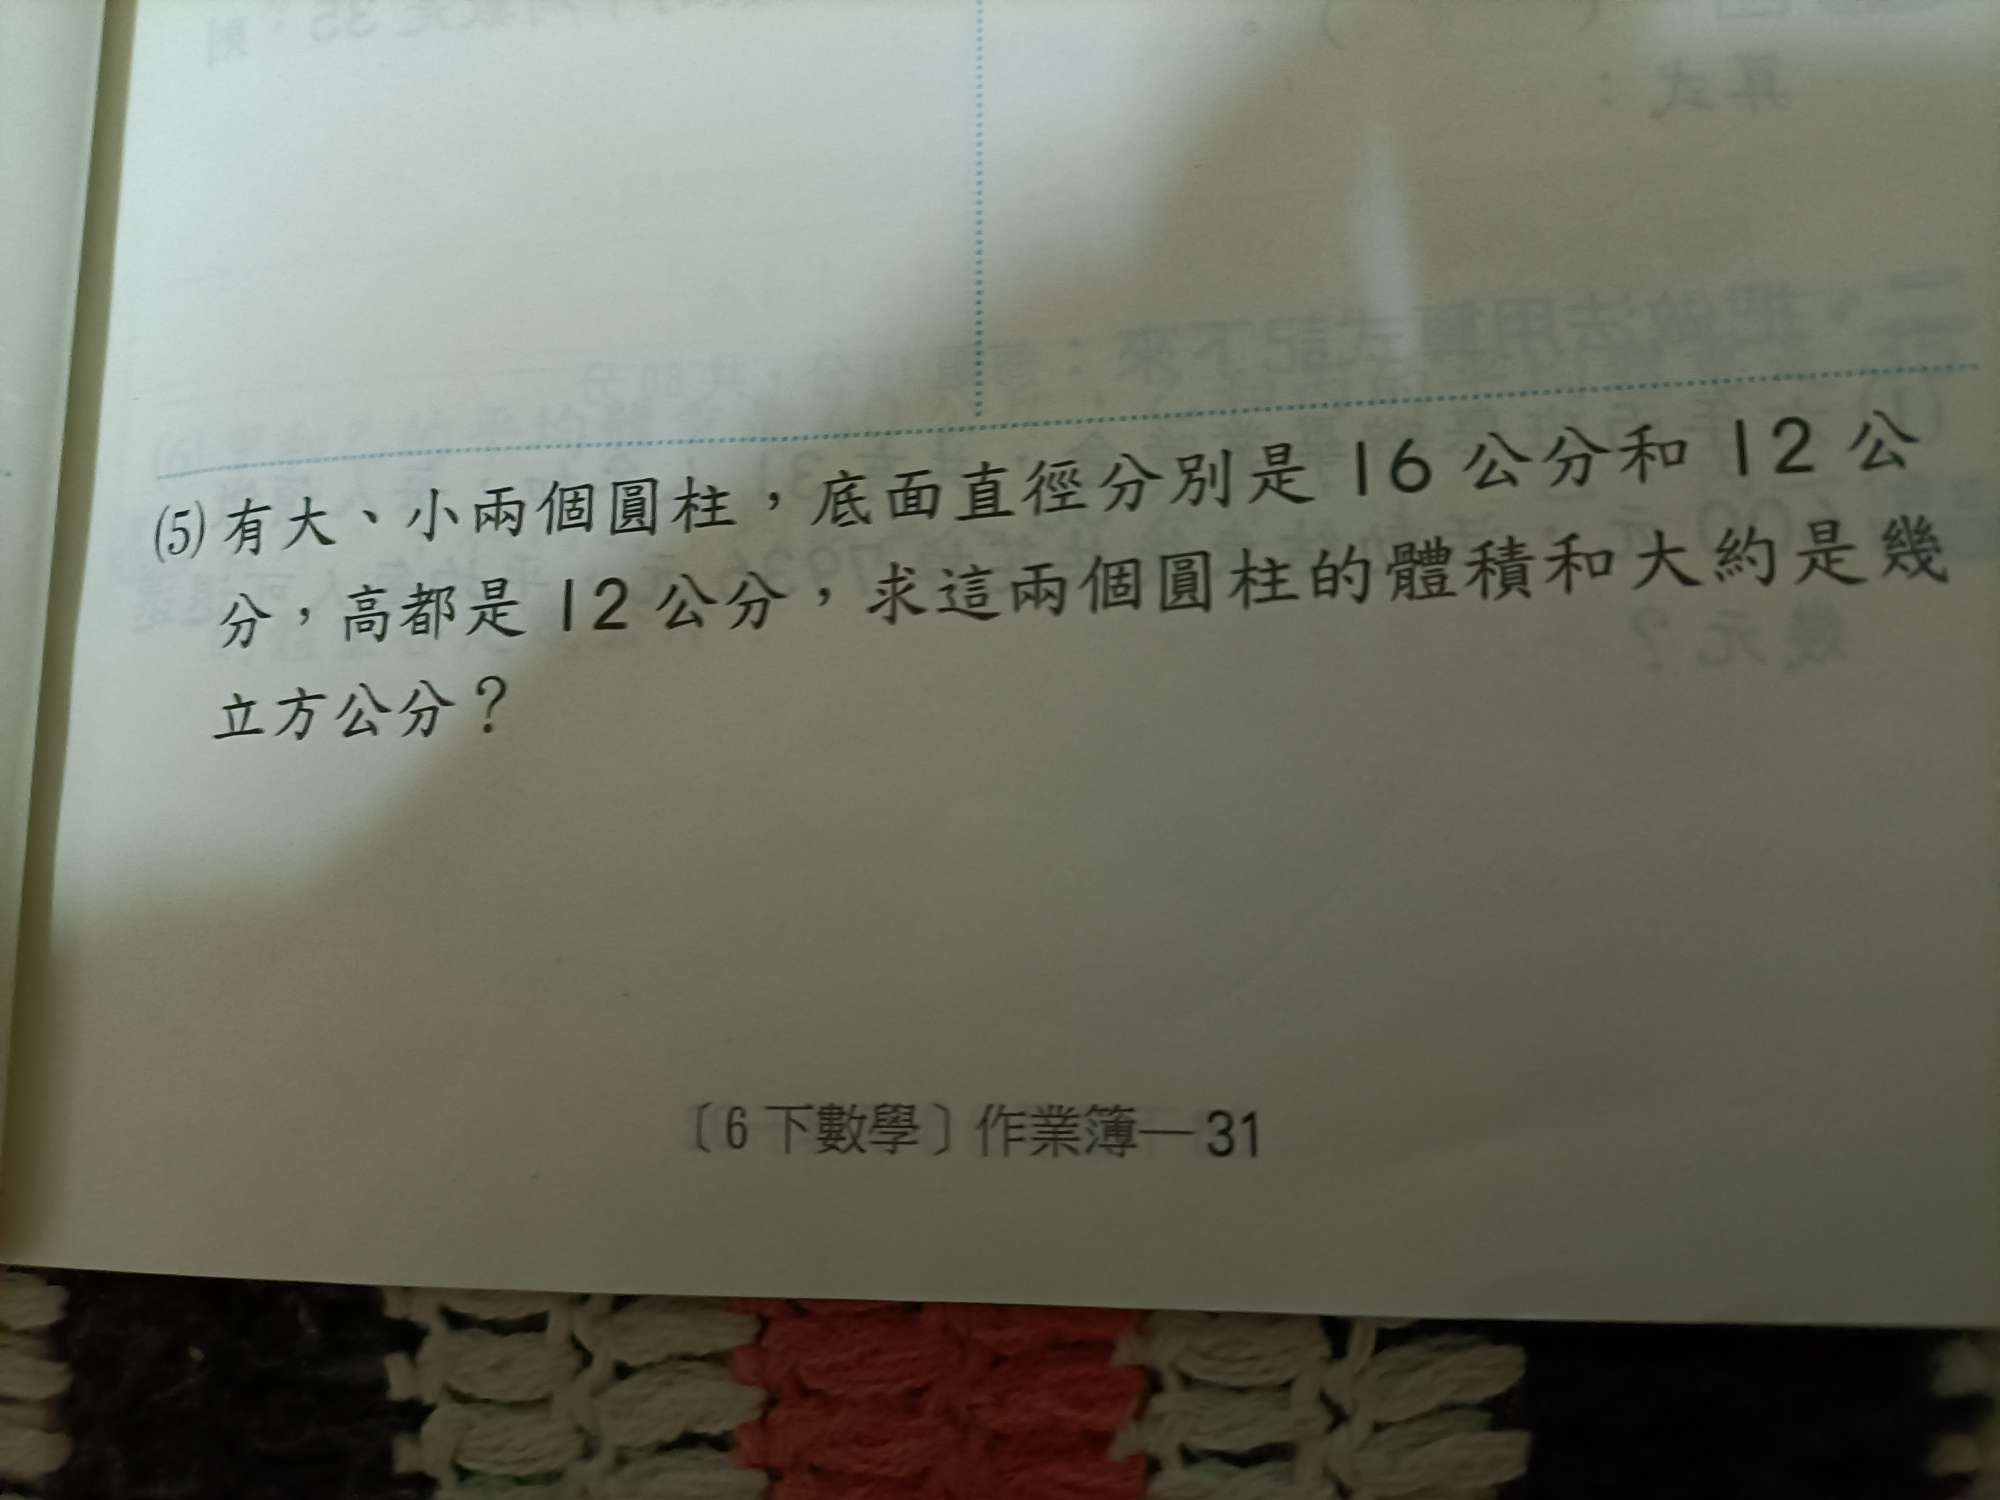 (5)有大、小兩個圓柱，底面直徑分別是 16 公分和 12 公
分，高都是 12 公分，求這兩個圓柱的體積和大約是幾
立方公分？
〔6下數學〕作業簿—31